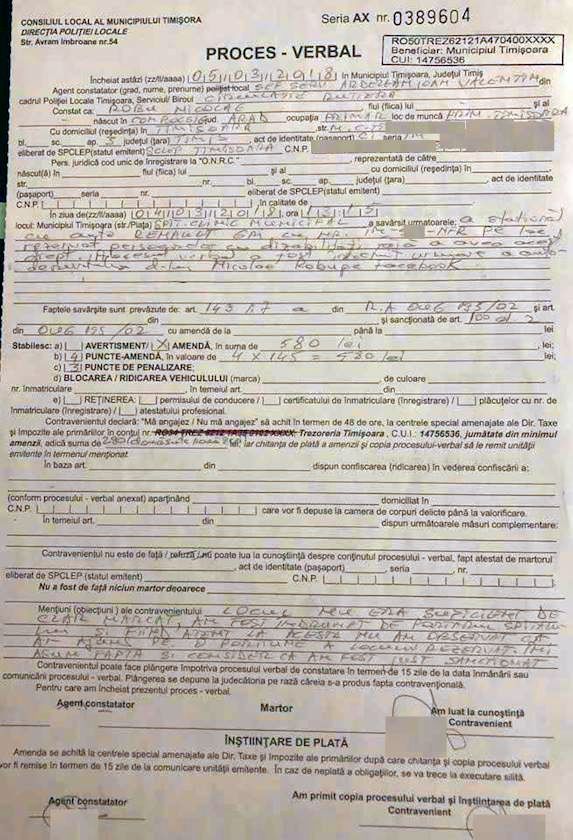 CONSILIUL LOCAL AL MUNICIPIULUI TIMIȘORA
DIRECȚIA POLIȚIEI LOCALE
Str. Avram Imbroane nr.54
Seria AX nr. 0389604
RO50TREZ62121A470400XXXX
Beneficiar: Municipiul Timișoara
CUI: 14756536
PROCES - VERBAL
Încheiat astăzi (zz/ll/aaaa) 05 03 2018 în Municipiul Timișoara, Județul Timiș
Agent constatator (grad, nume, prenume) polițist local SEF SERV ARDELEAN IOAN VALENTIN din
cadrul Poliției Locale Timișoara, Serviciul/ Biroul CIRCULATIE RUTIERA
Constat ca: ROBU NICOLAE fiul (fiica) lui și al
născut în COMPOSEȘ jud. ARAD ocupația PRIMAR loc de muncă PRIM. TIMISOARA
Cu domiciliul (reședința) în TIMISOARA str.
bl. sc. ap. 3 județul (țara) TIMIS act de identitate (pașaport) CI seria
eliberat de SPCLEP(statul emitent) SCLEP TIMISOARA C.N.P.
Pers. juridică cod unic de înregistrare la "O.N.R.C." , reprezentată de către
născut(ă) în fiul (fiica) lui și al cu domiciliul (reședința) în
str. nr. bl. sc. ap. județul (țara) , act de identitate
(pașaport) seria nr. eliberat de SPCLEP (statul emitent)
C.N.P. în calitate de
În ziua de(zz/ll/aaaa) 04 03 2018, ora
locul: Municipiul Timișoara (str./Piața) SPIT. CLINIC MUNICIPAL a savârsit urmatoarele: a stationat
cu auto RENAULT cu nr. TM- -NFR PE loc
rezervat persoanelor cu dizabilitati fara a avea acest
drept. Procesul verbal a fost incheiat urmare a auto-
denuntului d-lui Nicolae Robu pe facebook
Faptele savârșite sunt prevăzute de: art. 143 din R.A OUG 195/02 și art.
din și sancționată de art. 100 al 2
din OUG 195/02 cu amendă de la până la lei
Stabilesc: a) AVERTISMENT/ X AMENDĂ, în suma de 580 lei lei;
b) 4 PUNCTE-AMENDĂ, în valoare de 4 x 145 = 580 lei lei;
c) 3 PUNCTE DE PENALIZARE;
d) BLOCAREA / RIDICAREA VEHICULULUI (marca) , de culoare
nr. înmatriculare , în temeiul art. din
e) REȚINEREA: permisului de conducere / certificatului de înmatriculare (înregistrare) / plăcuțelor cu nr. de
înmatriculare (înregistrare) / atestatului profesional.
Contravenientul declară: "Mă angajez / Nu mă angajez" să achit în termen de 48 de ore, la centrele special amenajate ale Dir. Taxe
și Impozite ale primăriilor în contul nr. Trezoreria Timișoara , C.U.I.: 14756536, jumătate din minimul
amenzii, adică suma de 290 lei, iar chitanța de plată a amenzii și copia procesului-verbal să le remit unității
emitente în termenul menționat.
În baza art. din dispun confiscarea (ridicarea) în vederea confiscării a:
(conform procesului - verbal anexat) aparținând domiciliat în
C.N.P. care vor fi depuse la camera de corpuri delicte până la valorificare.
În temeiul art. din dispun următoarele măsuri complementare:
Contravenientul nu este de față / refuză / nu poate lua la cunoștiință despre conținutul procesului - verbal, fapt atestat de martorul
, act de identitate (pașaport) , seria , nr.
eliberat de SPCLEP (statul emitent) C.N.P.
Nu a fost de față niciun martor deoarece
Mențiuni (obiecțiuni) ale contravenientului LOCUL NU ERA SUFICIENT DE
CLAR MARCAT, AM FOST INDRUMAT DE PORTARUL SPITALU-
LUI SI FIIND ATENT LA ACESTA NU AM OBSERVAT CA
AM AJUNS PE O PORTIUNE A LOCULUI REZERVAT. IMI
ASUM FAPTA SI CONSIDER CA AM FOST JUST SANCTIONAT
Contravenientul poate face plângere împotriva procesului verbal de constatare în termen de 15 zile de la data înmânării sau
comunicării procesului - verbal. Plângerea se depune la judecătoria pe rază căreia s-a produs fapta contravențională.
Pentru care am încheiat prezentul proces - verbal.
Agent constatator
Martor
Am luat la cunoștință
Contravenient
ÎNȘTIINȚARE DE PLATĂ
Amenda se achită la centrele special amenajate ale Dir. Taxe și Impozite ale primăriilor după care chitanța și copia procesului verbal
vor fi remise în termen de 15 zile de la comunicare unității emitente. În caz de neplată a obligațiilor, se va trece la executare silită.
Agent constatator
Am primit copia procesului verbal și înștiințarea de plată
Contravenient